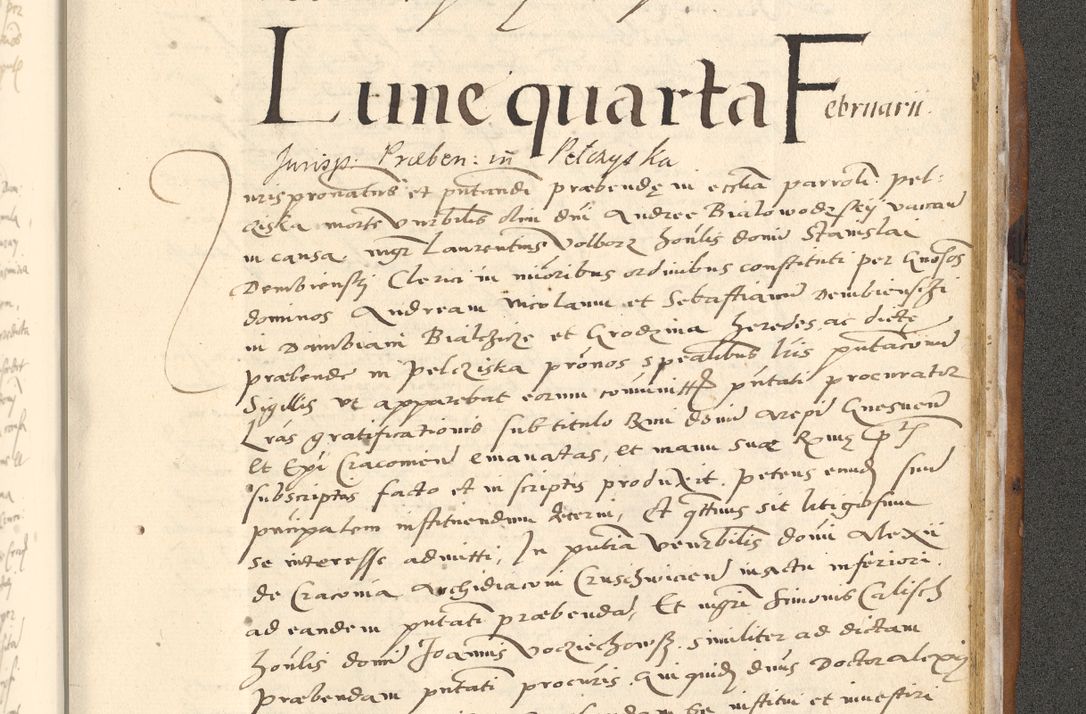 Lune quarta Februarii
Jurisp. Præben: in Pełczyska
urispronatus et pntandi præbendę in ecclia parroli pel-
cziska morte venrbilis olim dni Andree Bialowodzskÿ vacan
in causa mgr Laurentius Volborz honlis domi Stanislai
Dembienskj Clerici in minoribus ordinibus constituti per Gnosos
dominos Andream Nicolaum et Sebastianum Dembienskj
in Dambiani Bialczicze et Grodzina heredes, ac dictę
præbende in Pelcziska pronos spealibus lris pntacomi
Sigillis vt apparebat eorum comunitt pntati procurator
Lras gratificationis sub titulo Rmi domi Arepi Gnesnen
et Epi Cracomien emanatas, et manu suæ Rmę
subscriptas facto et in scriptis produxit. petens eund sum
pncipalem instituendum decerni, Et qtnus sit litigiosum
se interesse admitti, In pntia venrbilis domi Alexii
de Cracouia Archidiacom Cruschuicien in actu inferiori
ad eandem pntati præbendã, Et mgri Simonis Calisch
honlis domi Joannis Voczjechowsk similiter ad dictam
præbendam pntati procuris. Qui quid dnus Doctor Alexij
institui et inuestiri